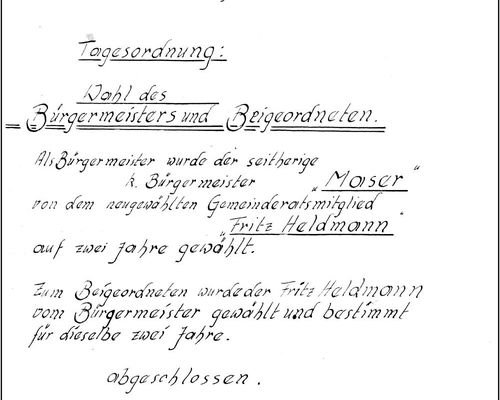 Tagesordnung:
Wahl des
Bürgermeisters und Beigeordneten.
Als Bürgermeister wurde der seitherige
k. Bürgermeister „Maser“
von dem neugewählten Gemeinderatsmitglied
„Fritz Heldmann“
auf zwei Jahre gewählt.
Zum Beigeordneten wurde der Fritz Heldmann
vom Bürgermeister gewählt und bestimmt
für dieselbe zwei Jahre.
abgeschlossen.